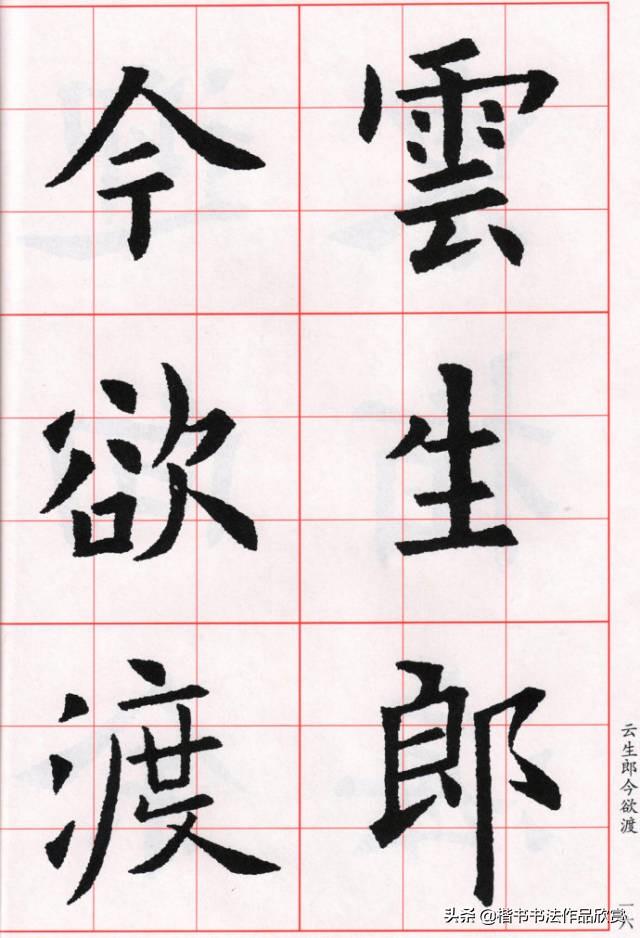 雲生郎
今欲渡
云生郎今欲渡
一六
头条 @楷书书法作品欣赏